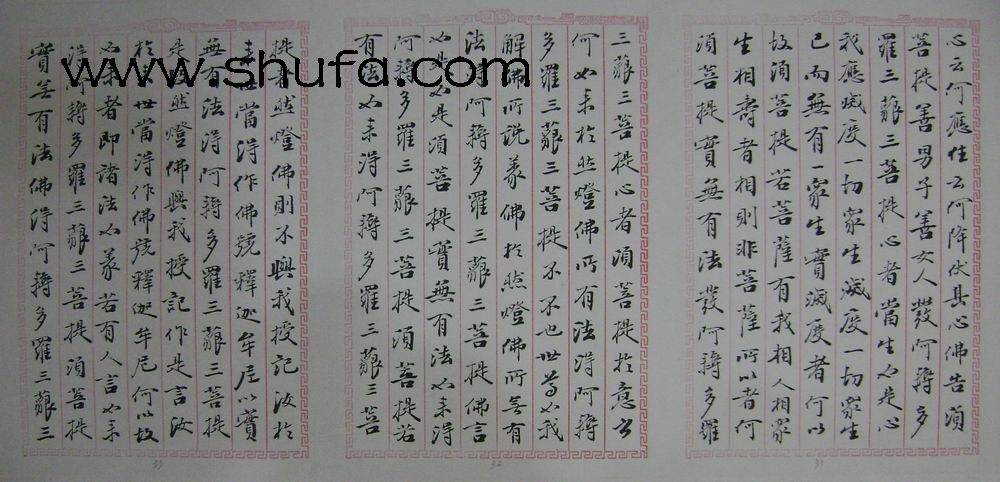 心云何應住云何降伏其心佛告須
菩提善男子善女人發阿耨多
羅三藐三菩提心者當生如是心
我應滅度一切衆生滅度一切衆生
已而無有一衆生實滅度者何以
故須菩提若菩薩有我相人相衆
生相壽者相則非菩薩所以者何
須菩提實無有法發阿耨多羅
31
三藐三菩提心者須菩提於意云
何如来於然燈佛所有法得阿耨
多羅三藐三菩提不不也世尊如我
解佛所説義佛於然燈佛所無有
法阿耨多羅三藐三菩提佛言
如是如是須菩提實無有法如来得
阿耨多羅三藐三菩提須菩提若
有法如来得阿耨多羅三藐三菩
32
提者然燈佛則不與我授記汝於
来世當得作佛號釋迦牟尼以實
無有法得阿耨多羅三藐三菩提
是故然燈佛與我授記作是言汝
於来世當得作佛號釋迦牟尼何以故
如来者即諸法如義若有人言如来
得阿耨多羅三藐三菩提須菩提
實無有法佛得阿耨多羅三藐三
33
www.shufa.com